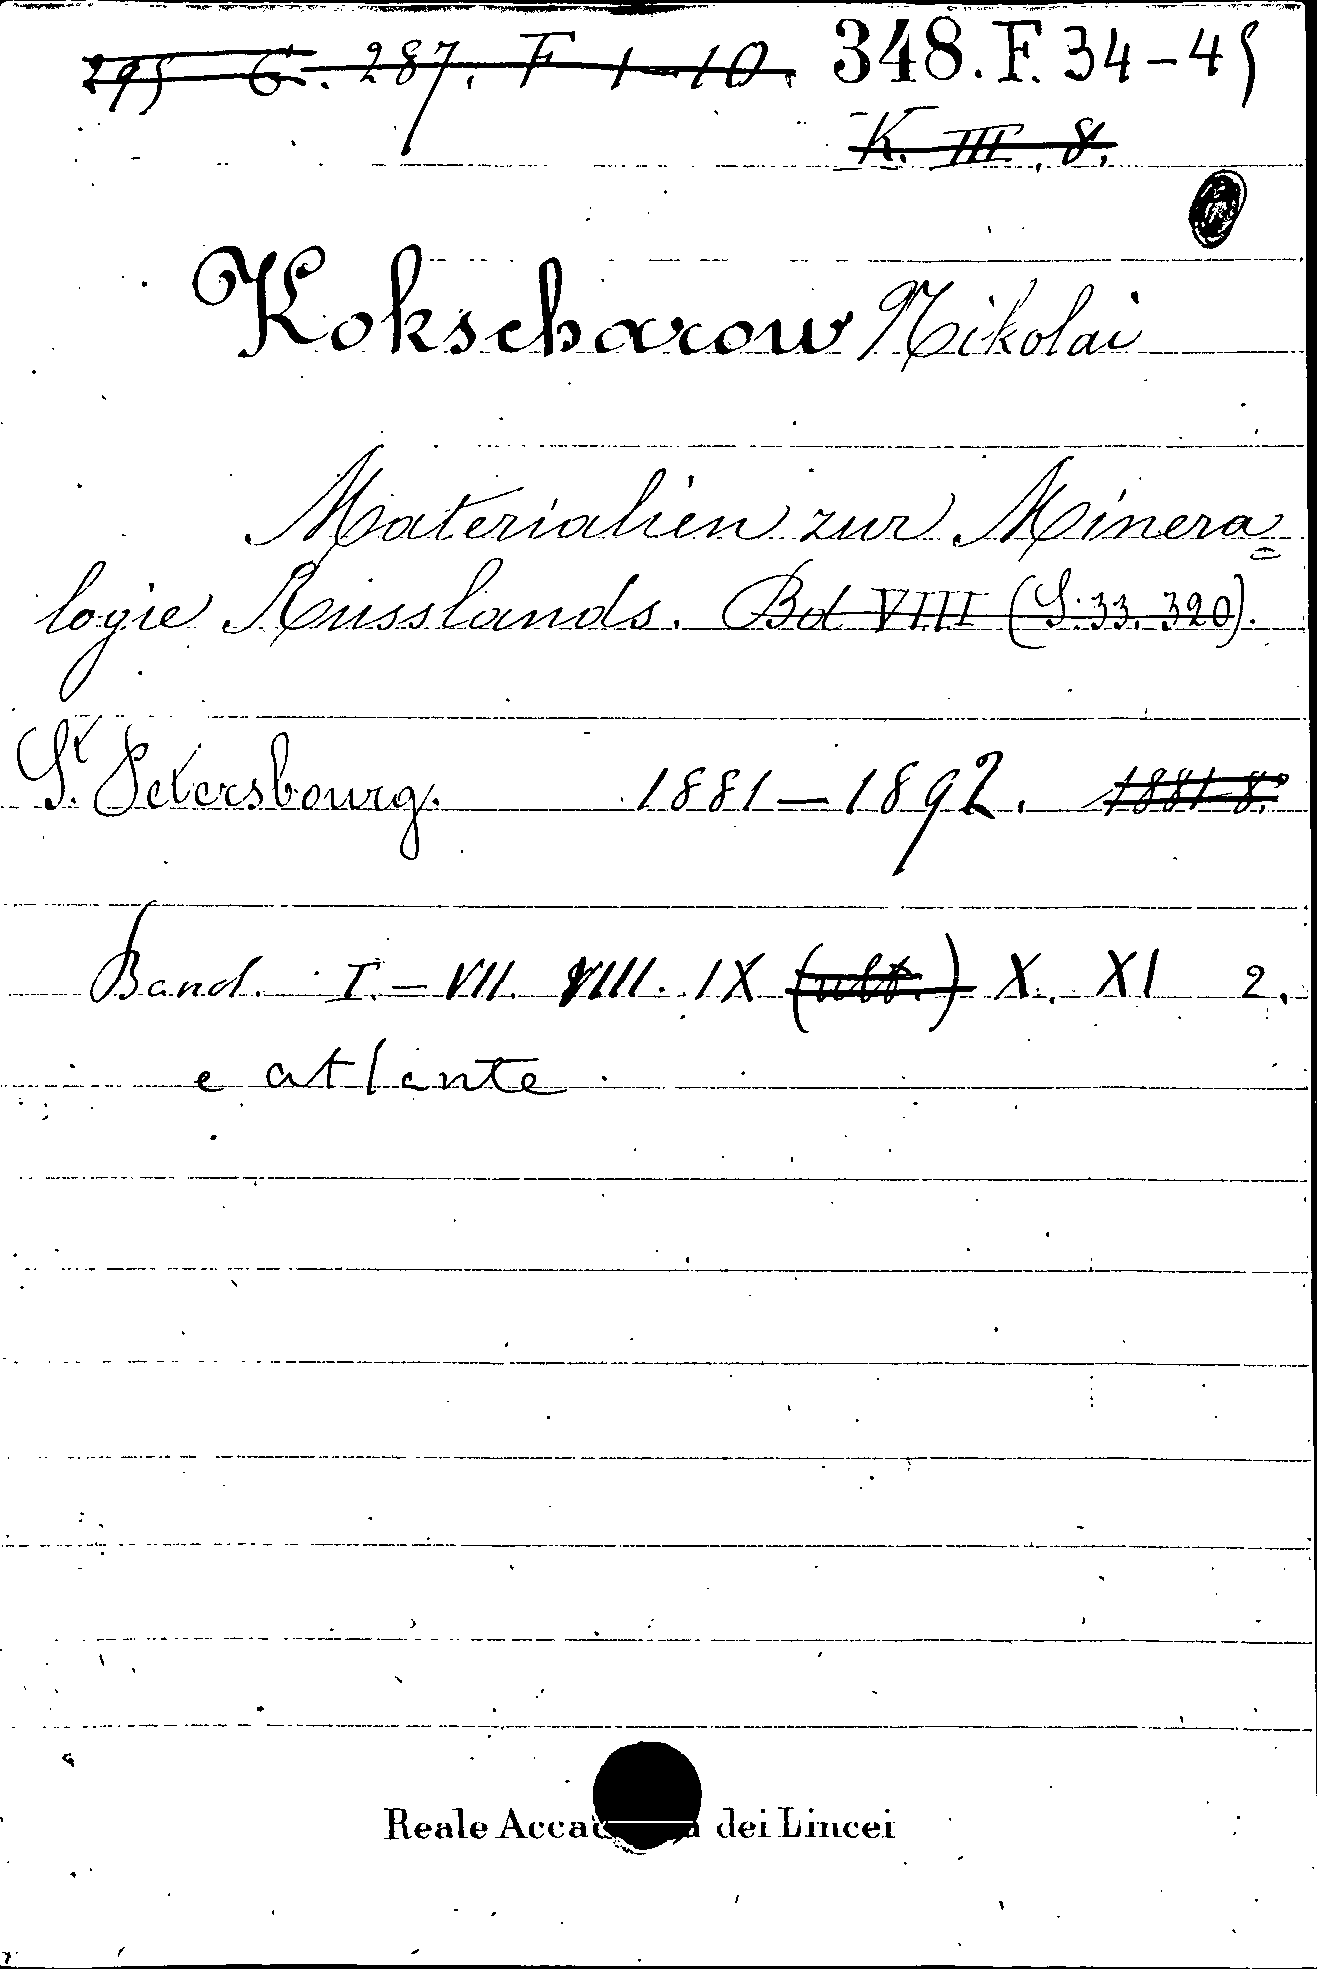 295 G. 287. F 1-10. 348. F. 34-45
K. III. 8.
Kokscharow Nikolai
Materialien zur Minera=
logie Russlands. Bd VIII (S. 33. 320).
St. Petersbourg. 1881-1892. 1881-8.
Band. I.-VII. VIII. IX (ult.) X. XI 2.
e atlante
Reale Accademia dei Lincei